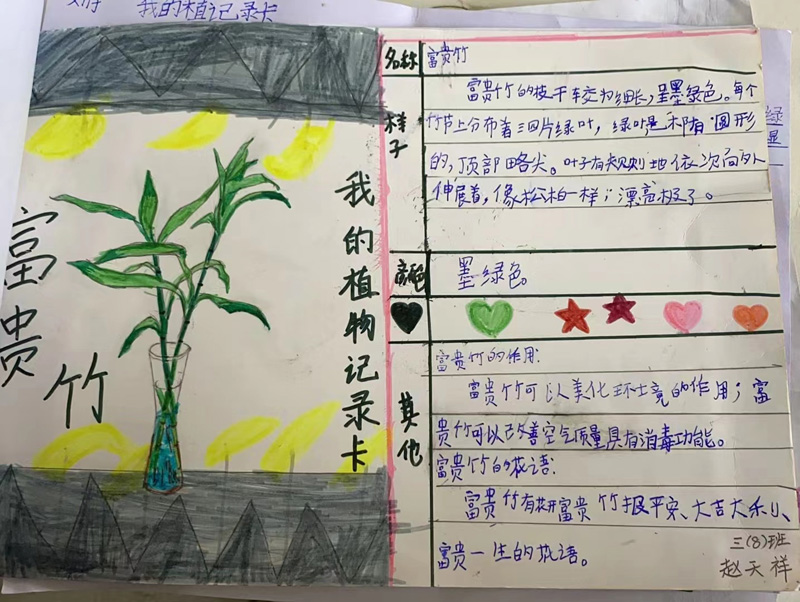 我的植记录卡
富贵竹
我的植物记录卡
名称
富贵竹
样子
富贵竹的枝干较为细长,呈墨绿色。每个
竹节上分布着三四片绿叶,绿叶是椭圆形
的,顶部略尖。叶子有规则地依次向外
伸展着,像松柏一样;漂亮极了。
颜色
墨绿色。
其他
富贵竹的作用:
富贵竹可以美化环境的作用;富
贵竹可以改善空气质量具有消毒功能。
富贵竹的花语:
富贵竹有花开富贵竹报平安、大吉大利、
富贵一生的花语。
三(8)班
赵天祥
绿
显